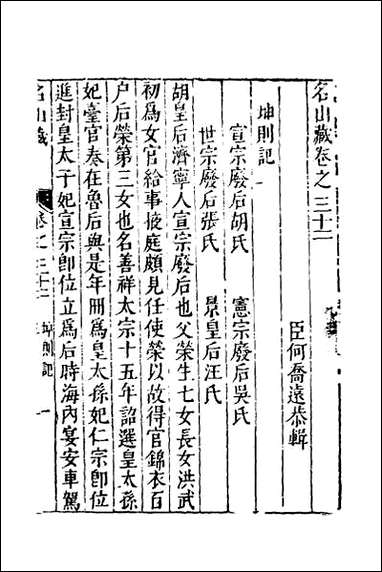 名山藏卷之三十二
臣何喬遠恭輯
坤則記一
宣宗廢后胡氏　憲宗廢后吳氏
世宗廢后張氏　景皇后汪氏
胡皇后濟寧人宣宗廢后也父榮生七女長女洪武
初爲女官給事掖庭頗見任使榮以故得官錦衣百
户后榮第三女也名善祥太宗十五年詔選皇太孫
妃臺官奏在魯后與是年冊爲皇太孫妃仁宗卽位
進封皇太子妃宣宗卽位立爲后時海內宴安車駕
名山藏　卷之三十二　坤則記　一